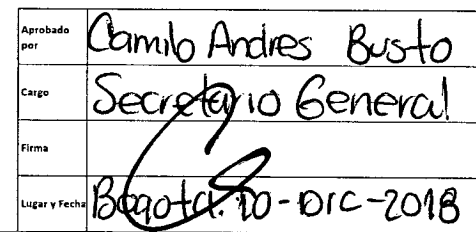 Aprobado por Camilo Andres Busto
Cargo Secretario General
Firma
Lugar y Fecha Bogota. 10-DIC-2018